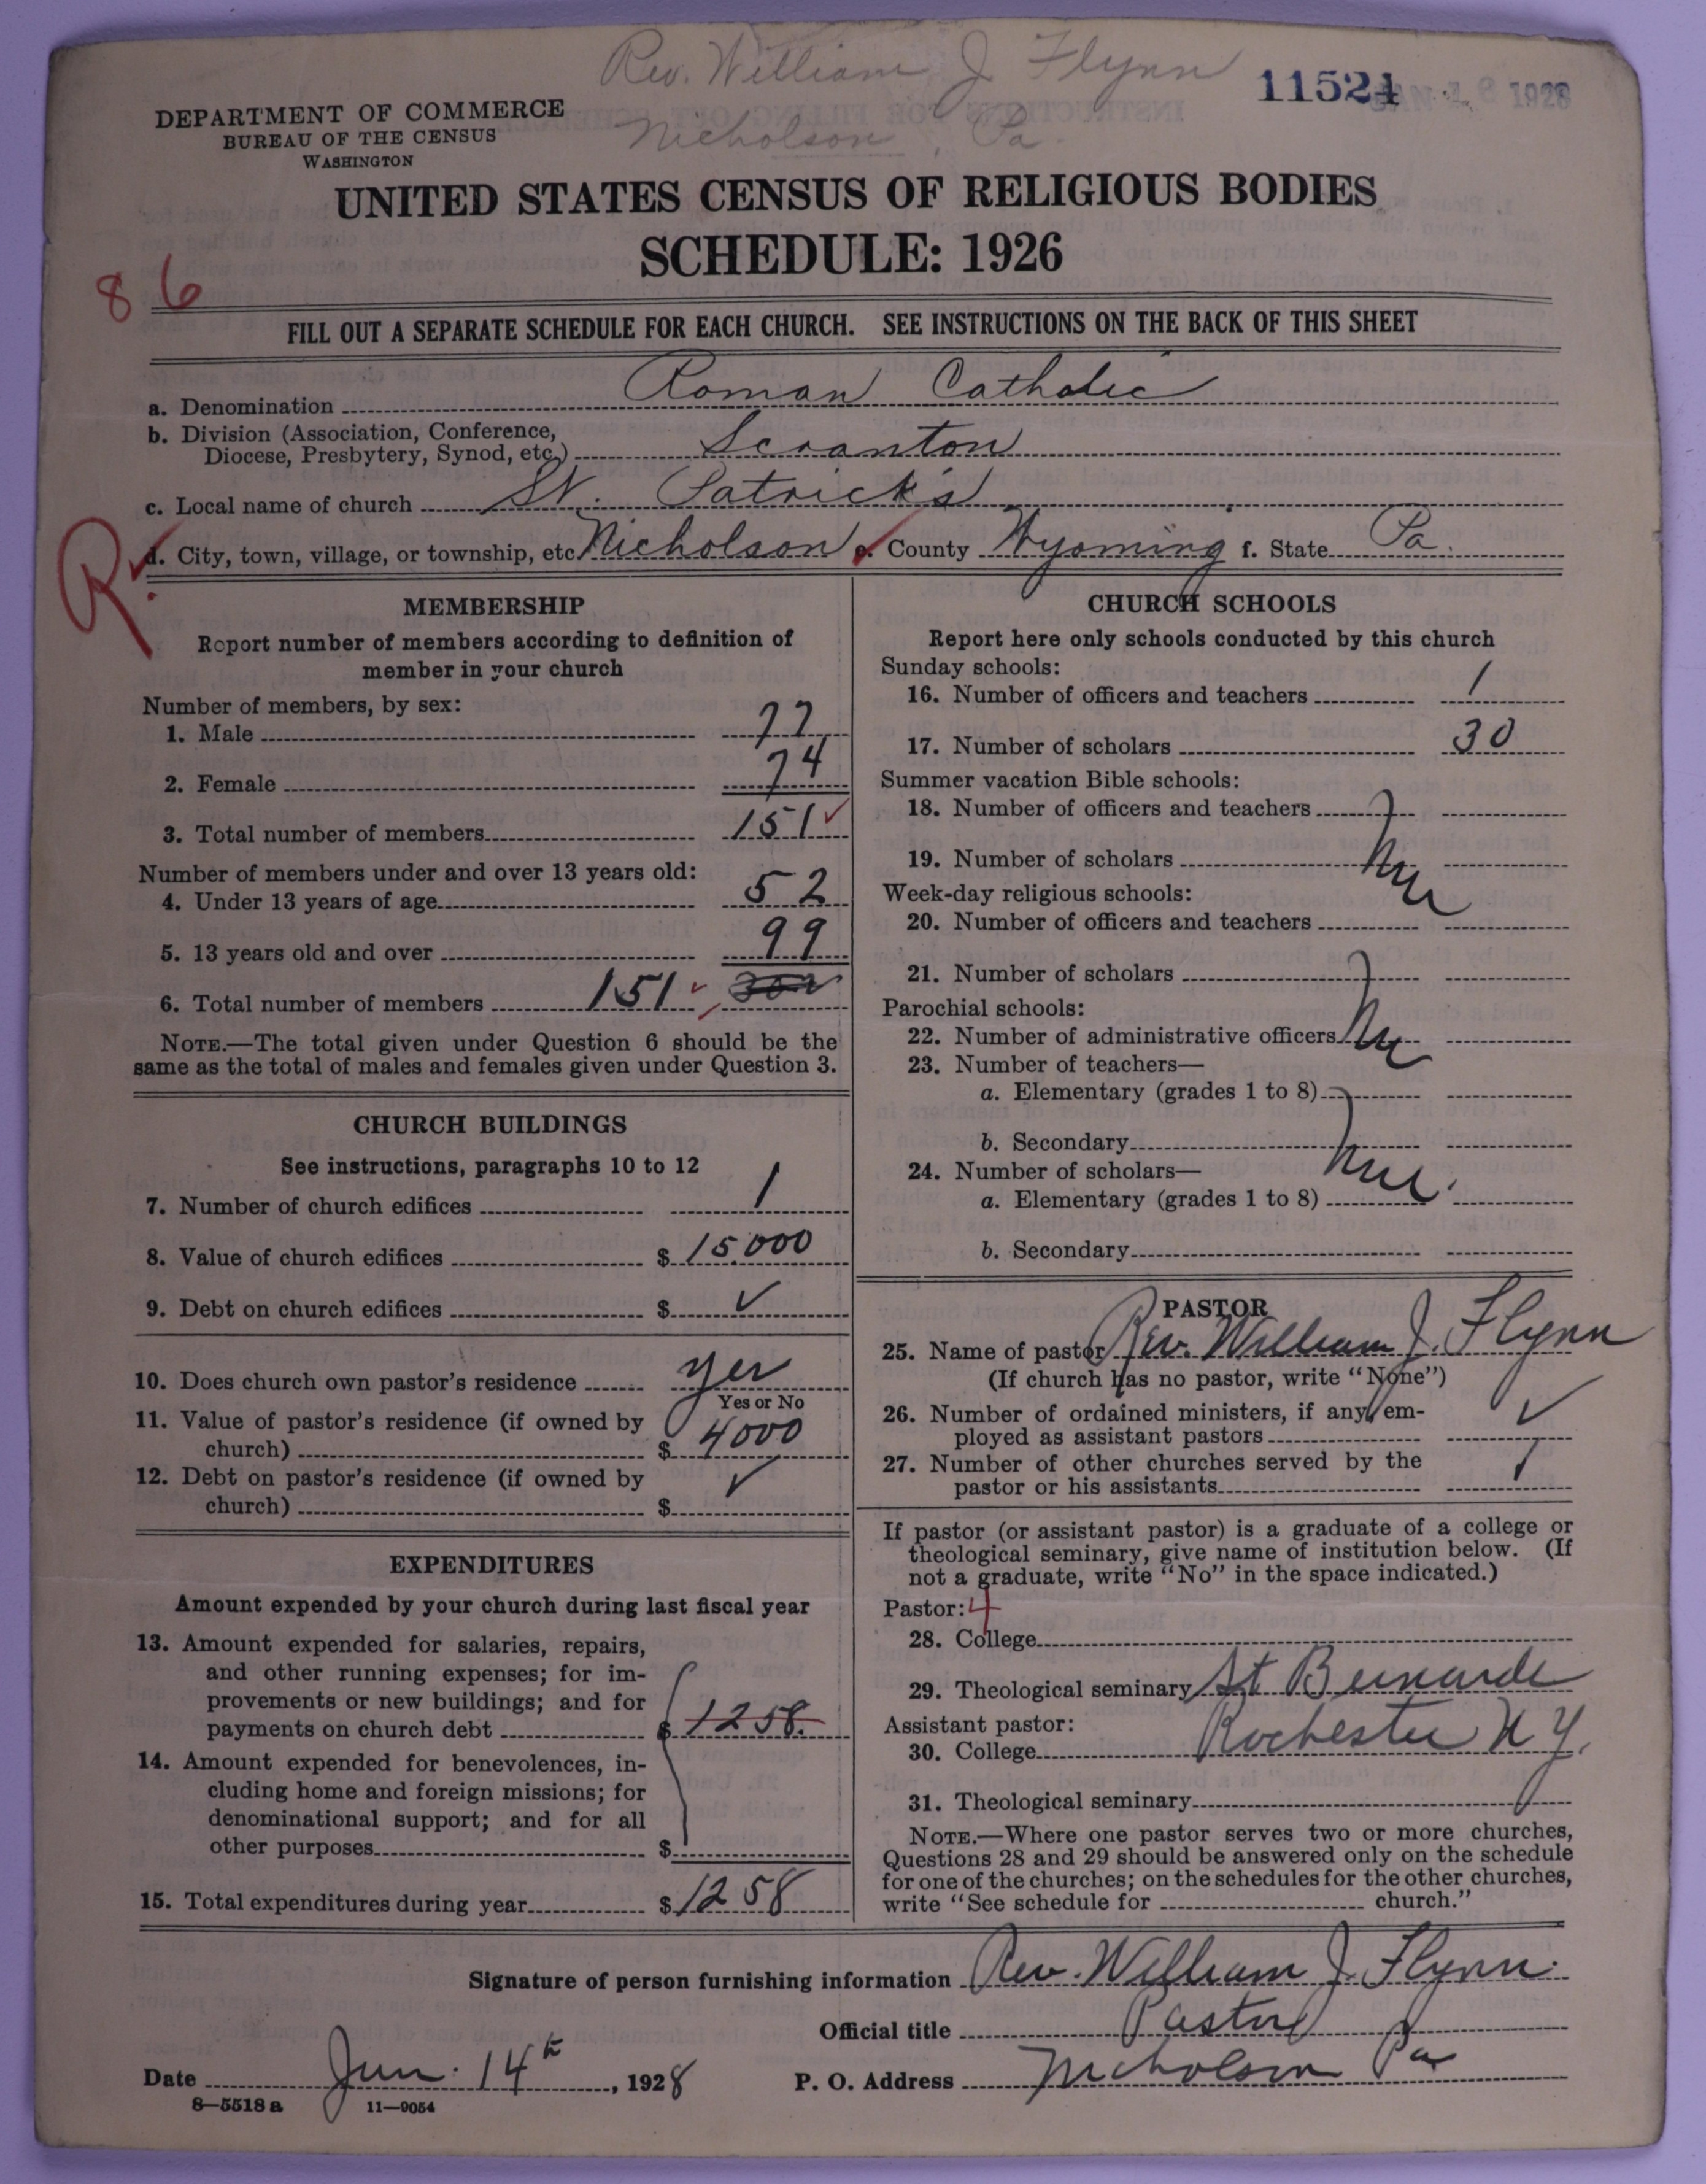 Rev. William J Flynn
Nicholson, Pa.
11524 JAN 18 1928
DEPARTMENT OF COMMERCE
BUREAU OF THE CENSUS
WASHINGTON
UNITED STATES CENSUS OF RELIGIOUS BODIES
SCHEDULE: 1926
86
FILL OUT A SEPARATE SCHEDULE FOR EACH CHURCH. SEE INSTRUCTIONS ON THE BACK OF THIS SHEET
a. Denomination Roman Catholic
b. Division (Association, Conference,
Diocese, Presbytery, Synod, etc.) Scranton
c. Local name of church St. Patrick's
R
d. City, town, village, or township, etc. Nicholson e. County Wyoming f. State Pa.
MEMBERSHIP
Report number of members according to definition of
member in your church
Number of members, by sex:
1. Male 77
2. Female 74
3. Total number of members 151
Number of members under and over 13 years old:
4. Under 13 years of age 52
5. 13 years old and over 99
6. Total number of members 151 302
NOTE.—The total given under Question 6 should be the
same as the total of males and females given under Question 3.
CHURCH BUILDINGS
See instructions, paragraphs 10 to 12
7. Number of church edifices 1
8. Value of church edifices $ 15000
9. Debt on church edifices $ ✓
10. Does church own pastor's residence yes
Yes or No
11. Value of pastor's residence (if owned by
church) $ 4000
12. Debt on pastor's residence (if owned by
church) $ ✓
EXPENDITURES
Amount expended by your church during last fiscal year
13. Amount expended for salaries, repairs,
and other running expenses; for im-
provements or new buildings; and for
payments on church debt $ 1258.
14. Amount expended for benevolences, in-
cluding home and foreign missions; for
denominational support; and for all
other purposes $
15. Total expenditures during year $ 1258
CHURCH SCHOOLS
Report here only schools conducted by this church
Sunday schools:
16. Number of officers and teachers 1
17. Number of scholars 30
Summer vacation Bible schools:
18. Number of officers and teachers
19. Number of scholars
Week-day religious schools:
20. Number of officers and teachers
21. Number of scholars
Parochial schools:
22. Number of administrative officers
23. Number of teachers—
a. Elementary (grades 1 to 8)
b. Secondary
24. Number of scholars—
a. Elementary (grades 1 to 8)
b. Secondary
PASTOR
25. Name of pastor Rev. William J. Flynn
(If church has no pastor, write "None")
26. Number of ordained ministers, if any, em-
ployed as assistant pastors ✓
27. Number of other churches served by the
pastor or his assistants 1
If pastor (or assistant pastor) is a graduate of a college or
theological seminary, give name of institution below. (If
not a graduate, write "No" in the space indicated.)
Pastor: 4
28. College
29. Theological seminary St Bernards
Assistant pastor: Rochester N Y.
30. College
31. Theological seminary
NOTE.—Where one pastor serves two or more churches,
Questions 28 and 29 should be answered only on the schedule
for one of the churches; on the schedules for the other churches,
write "See schedule for church."
Signature of person furnishing information Rev. William J. Flynn.
Official title Pastor
Date Jan. 14th, 1928 P. O. Address Nicholson Pa
8—5518 a 11—9054